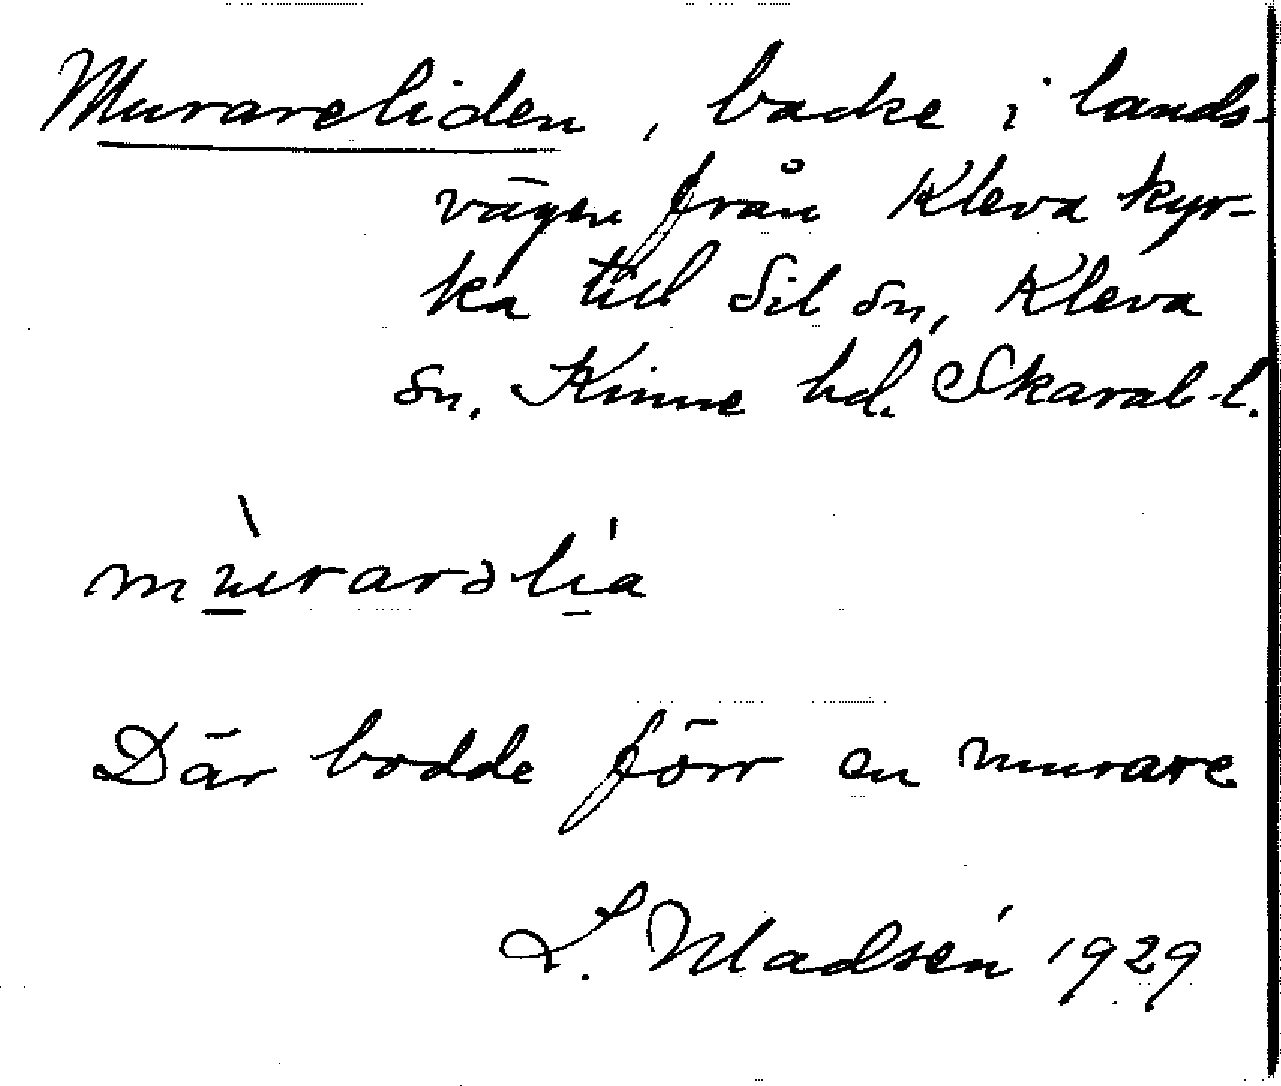 Murareliden, backe i lands-
vägen från Kleva kyr-
ka till Sil sn, Kleva
sn. Kinne hd. Skarab-l.
mùrarəlía
Där bodde förr en murare
L. Madsén 1929